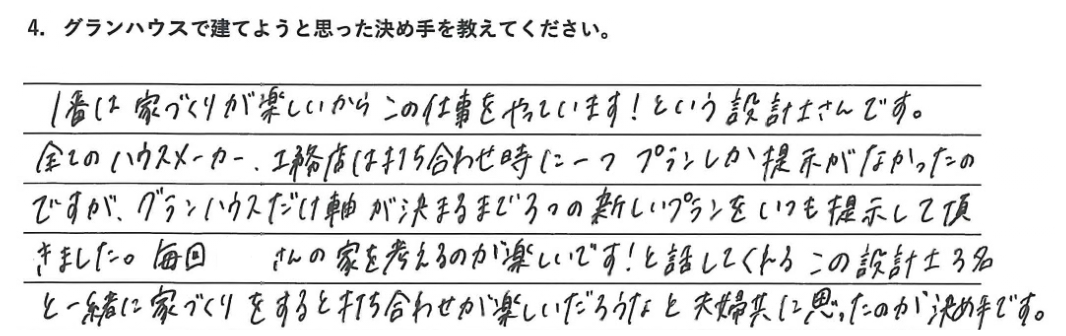 4. グランハウスで建てようと思った決め手を教えてください。
1番は家づくりが楽しいからこの仕事をやっています！という設計士さんです。
全てのハウスメーカー、工務店は打ち合わせ時に一つプランしか提示がなかったの
ですが、グランハウスだけ軸が決まるまで3つの新しいプランをいつも提示して頂
きました。毎回 さんの家を考えるのが楽しいです！と話してくれるこの設計士3名
と一緒に家づくりをすると打ち合わせが楽しいだろうなと夫婦共に思ったのが決め手です。